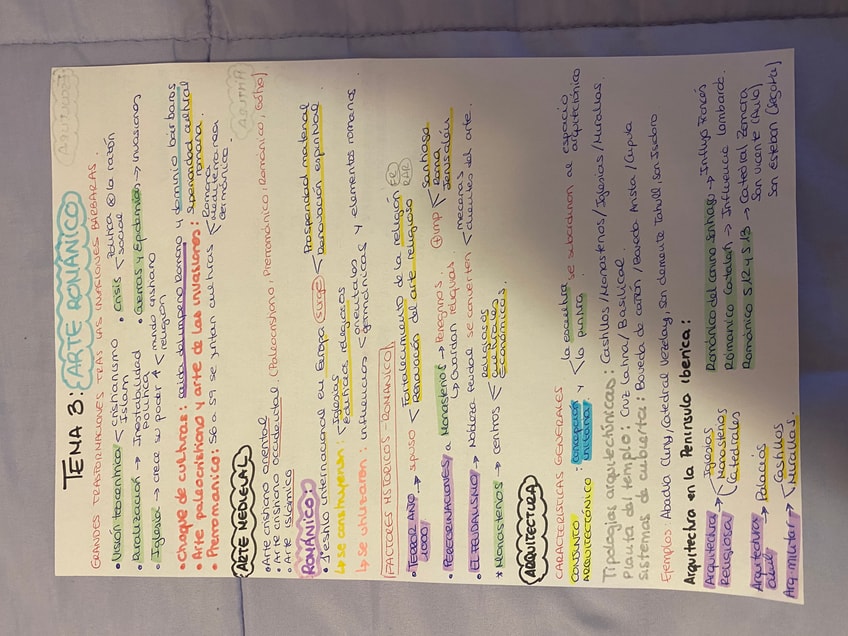 TEMA 3: ARTE ROMÁNICO
GRANDES TRASFORNACIONES TRAS LAS INVASIONES BARBARAS.
• Visión teocéntrica < cristianismo Islam • Crisis < Política social la razón
• Ruralización → Inestabilidad Política • Guerras y Epidemias → Invasiones
• Iglesia → crece su poder mundo cristiano religión
• Choque de culturas: caída del imperio Romano y dominio bárbaros
• Arte paleocristiano y arte de las invasiones: superioridad cultural romana.
• Prerromanico: S6 a S9 se juntan culturas < Romana Mediterranea Germánica
ARTE MEDIEVAL
• Arte cristiano oriental
• Arte cristiano occidental (Paleocristiano, Prerrománico, Románico, Gótico)
• Arte islámico
ROMÁNICO:
• 1º estilo internacional en Europa surge < Prosperidad material Renovación espiritual
↳ se construyeron: Iglesias edificios religiosos
↳ se utilizaron: influencias < orientales germánicas y elementos romanos
FACTORES HISTORICOS - ROMÁNICO
• TERROR AÑO 1000 → supuso < Fortalecimiento de la religión Renovación del arte religioso
• PEREGRINACIONES a Monasterios → Peregrinos ⊕ imp < Santiago Roma Jerusalén
↳ Guardan reliquias
• EL FEUDALISMO → Nobleza feudal se convierten < mecenas clientes del arte.
* Monasterios → centros < Religiosos culturales Económicos.
ARQUITECTURA
CARACTERÍSTICAS GENERALES
CONJUNTO ARQUITECTÓNICO: concepción unitaria y < la escultura la pintura se subordinan al espacio arquitectónico
Tipologías arquitectónicas: Castillos/Monasterios/Iglesias/Murallas.
Planta del templo: Cruz Latina/Basilical
sistemas de cubierta: Boveda de cañón/Boveda Arista/Cupula
Ejemplos: Abadía Cluny/Catedral Vezelay, san clemente Tahull, san Isidoro
Arquitectura en la Península Iberica:
Arquitectura Religiosa < Iglesias Monasterios Catedrales
Románico del camino Santiago → Influjo Francés
Romanico Catalán → Influencia Lombarda.
Románico S.12 y S.13 → Catedral Zamora San vicente (Avila) San Esteban (Segovia)
Arquitectura civil → Palacios
Arq. militar < Castillos Murallas.